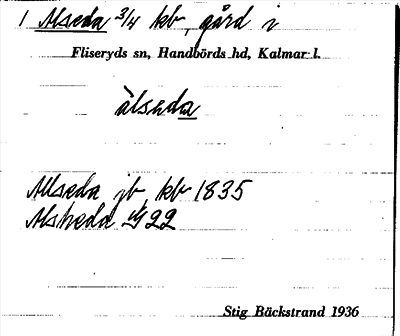 1 Alseda 3/4 kb, gård i
Fliseryds sn, Handbörds hd, Kalmar l.
àlseda
Allseda jb, kb 1835
Alsheda G22
Stig Bäckstrand 1936